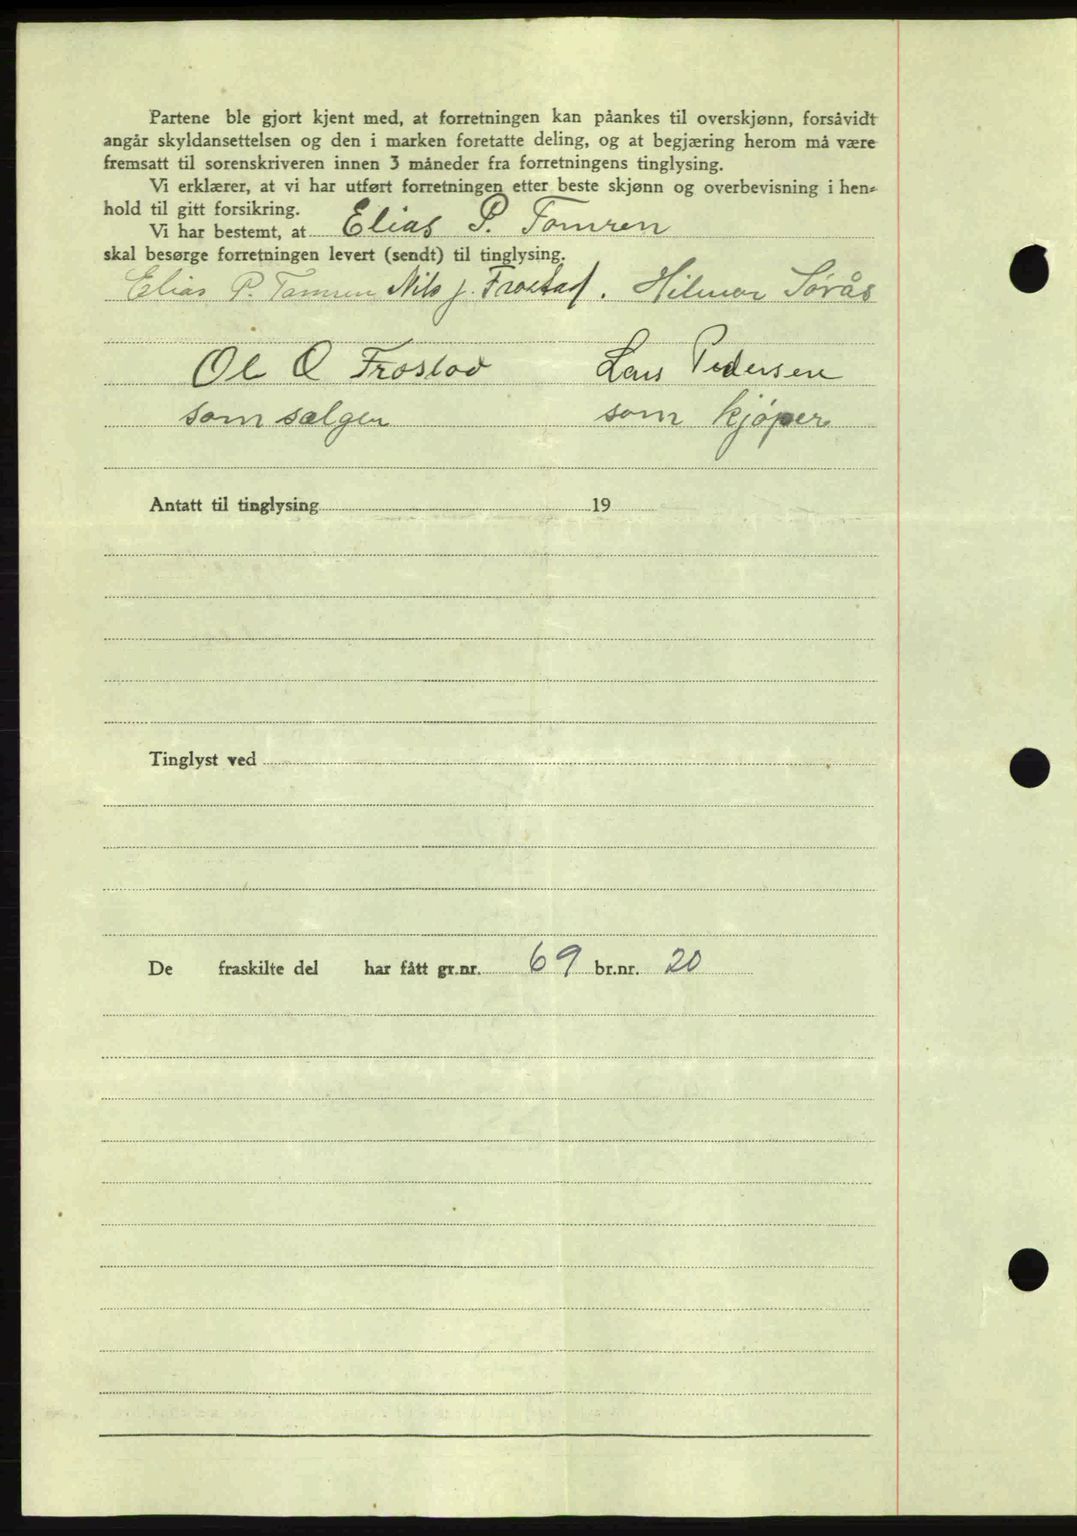 Partene ble gjort kjent med, at forretningen kan påankes til overskjønn, forsåvidt
angår skyldansettelsen og den i marken foretatte deling, og at begjæring herom må være
fremsatt til sorenskriveren innen 3 måneder fra forretningens tinglysing.
Vi erklærer, at vi har utført forretningen etter beste skjønn og overbevisning i hen-
hold til gitt forsikring.
Vi har bestemt, at Elias P. Tomren
skal besørge forretningen levert (sendt) til tinglysing.
Elias P. Tomren Nils J. Frostad. Hilmar Sørås
Ole O Frostad Lars Pedersen
som sælger som kjøper
Antatt til tinglysing 19
Tinglyst ved
De fraskilte del har fått gr.nr. 69 br.nr. 20